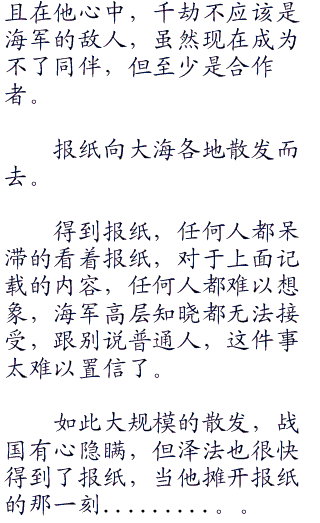 且在他心中，千劫不应该是
海军的敌人，虽然现在成为
不了同伴，但至少是合作
者。
报纸向大海各地散发而
去。
得到报纸，任何人都呆
滞的看着报纸，对于上面记
载的内容，任何人都难以想
象，海军高层知晓都无法接
受，跟别说普通人，这件事
太难以置信了。
如此大规模的散发，战
国有心隐瞒，但泽法也很快
得到了报纸，当他摊开报纸
的那一刻.........。。